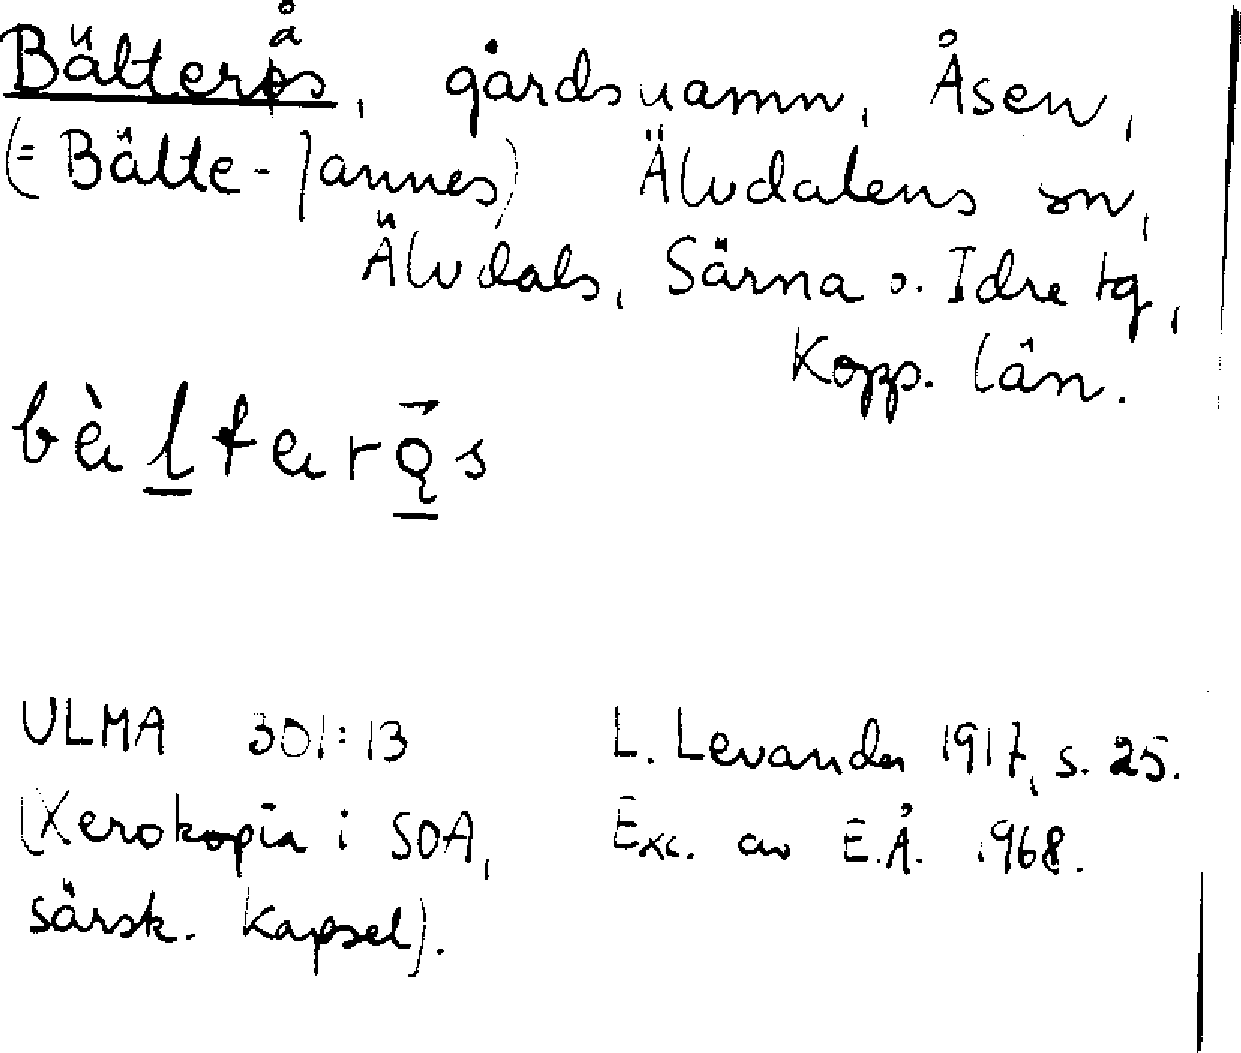 Bälterås, gårdsnamn, Åsen,
(= Bälte-Jannes) Älvdalens sn,
Älvdals, Särna o. Idre tg,
Kopp. län.
ULMA 301:13 L. Levander 1917, s. 25.
(Xerokopia i SOA, Exc. av E.Å. 1968.
särsk. kapsel).